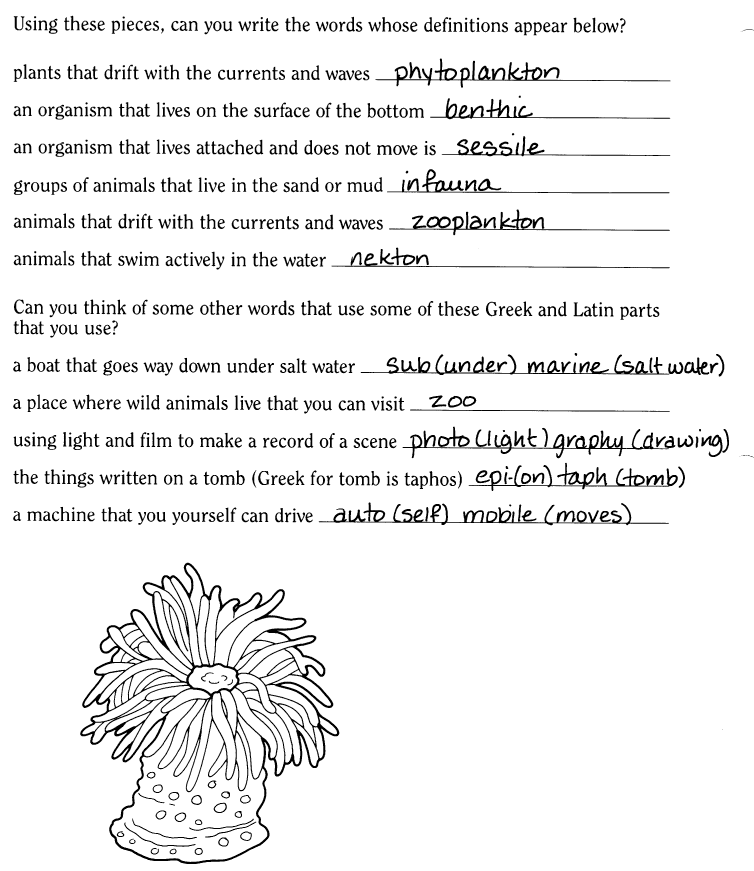 Using these pieces, can you write the words whose definitions appear below?
plants that drift with the currents and waves phytoplankton
an organism that lives on the surface of the bottom benthic
an organism that lives attached and does not move is sessile
groups of animals that live in the sand or mud infauna
animals that drift with the currents and waves zooplankton
animals that swim actively in the water nekton
Can you think of some other words that use some of these Greek and Latin parts
that you use?
a boat that goes way down under salt water sub (under) marine (salt water)
a place where wild animals live that you can visit zoo
using light and film to make a record of a scene photo (light) graphy (drawing)
the things written on a tomb (Greek for tomb is taphos) epi-(on) taph (tomb)
a machine that you yourself can drive auto (self) mobile (moves)